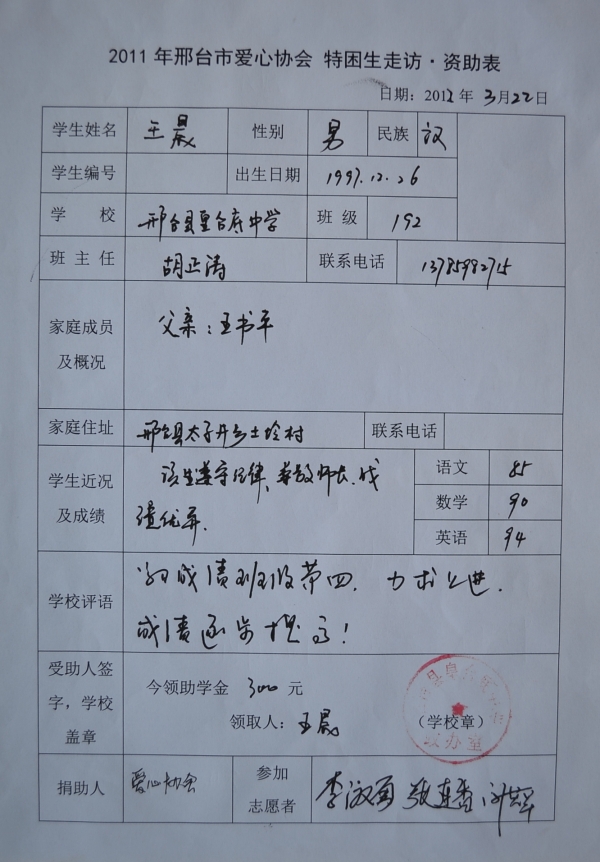 2011年邢台市爱心协会 特困生走访·资助表
日期：2012年 3月22日
学生姓名 王晨 性别 男 民族 汉
学生编号 出生日期 1997.12.26
学 校 邢台县皇台府中学 班 级 192
班 主 任 胡正涛 联系电话 13785982715
家庭成员
及概况
父亲：王书平
家庭住址 邢台县太子井乡土岭村 联系电话
学生近况
及成绩
该生遵守纪律、尊敬师长、成
绩优异.
语文 85
数学 90
英语 94
学校评语
成绩班级第四. 力求上进.
成绩逐步提高！
受助人签
字，学校
盖章
今领助学金 300 元
领取人：王晨
（学校章）
政办室
捐助人 爱心协会
参加
志愿者
李淑